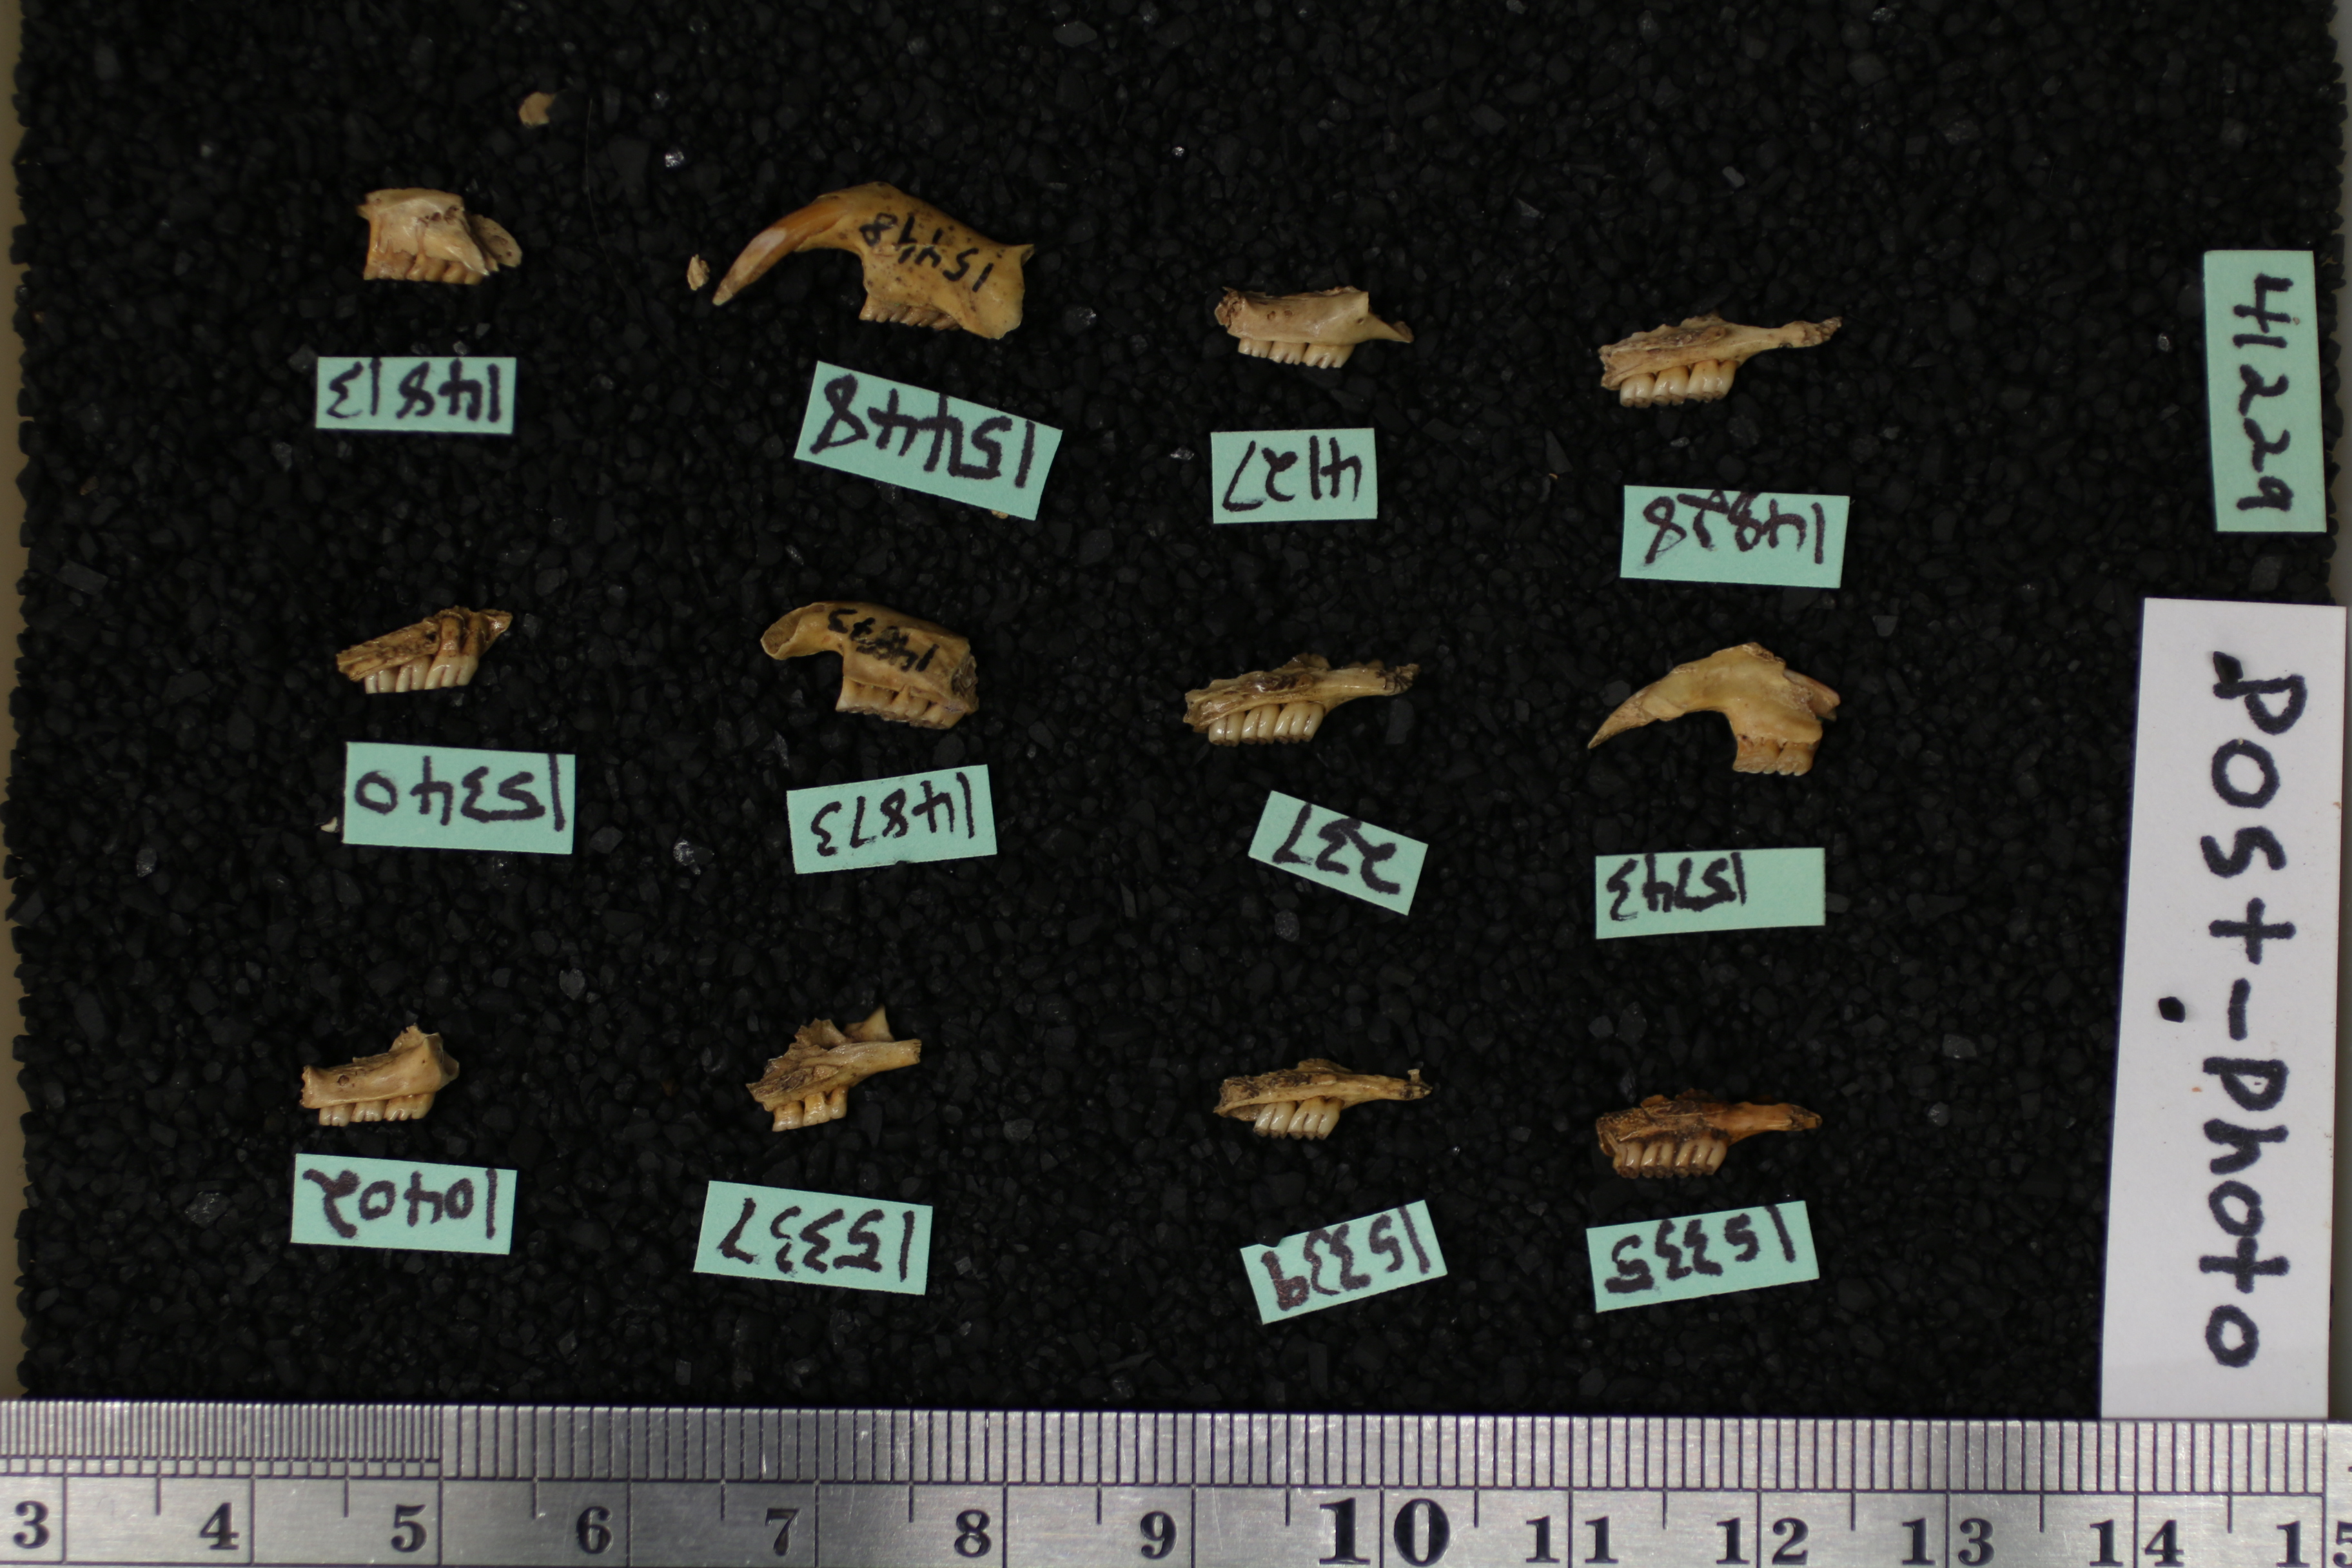 41229
Post-Photo
14878
15743
15335
4127
237
15339
15448
15448
14873
14873
15337
14813
15340
10402
15
14
14
13
13
12
12
11
11
10
10
9
8
7
6
5
4
3